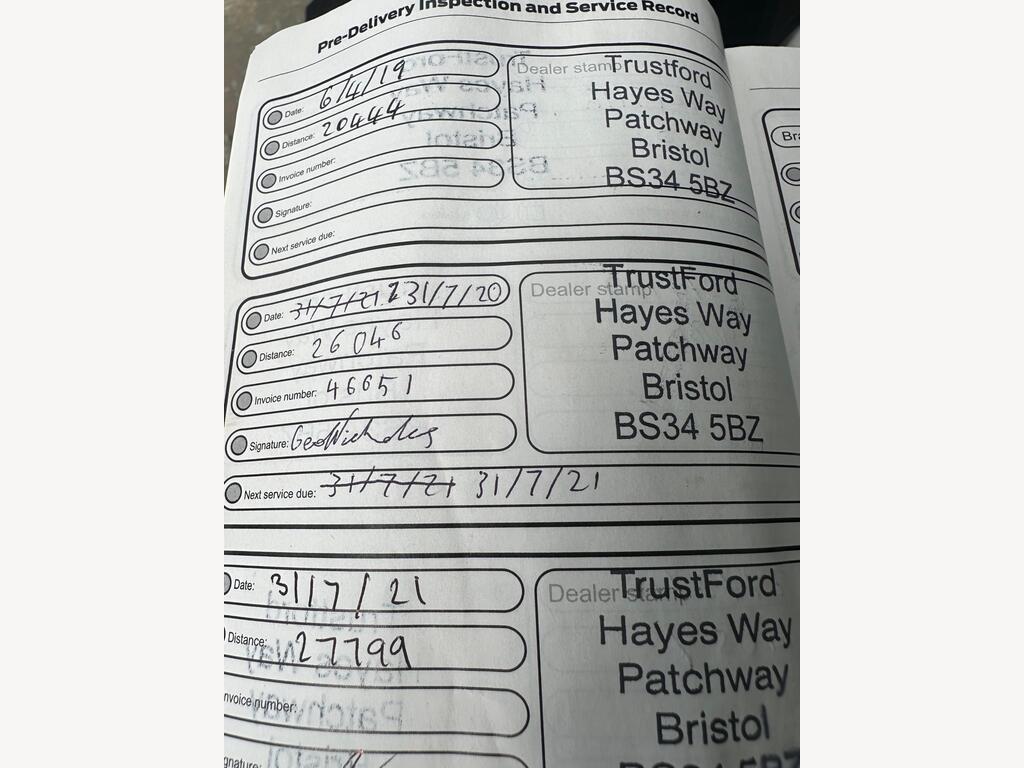 Pre-Delivery Inspection and Service Record
Date: 6/4/19
Distance: 20444
Invoice number:
Signature:
Next service due:
Dealer stamp
Trustford
Hayes Way
Patchway
Bristol
BS34 5BZ
Date: 31/7/21 31/7/20
Distance: 26046
Invoice number: 46651
Signature: GeoNicholes
Next service due: 31/7/21 31/7/21
Dealer stamp
TrustFord
Hayes Way
Patchway
Bristol
BS34 5BZ
Date: 31/7/21
Distance: 27799
nvoice number:
gnature:
Dealer stamp
TrustFord
Hayes Way
Patchway
Bristol
BS34 5BZ
Bra